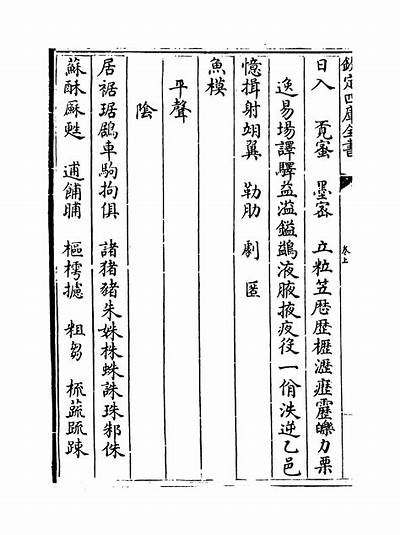 欽定四庫全書 卷上
日入 覓蜜 墨密 立粒笠厯歴櫪瀝癧靂皪力栗
逸易場譯驛益溢鎰鷁液腋掖疫後一佾泆逆乙邑
憶揖射翊翼 勒肋 劇 匿
魚模
平聲
陰
居裾琚鶋車駒拘俱 諸猪豬朱姝株蛛誅珠邾侏
蘇酥甦 逋餔晡 樞樗攄 粗芻 梳蔬疏踈